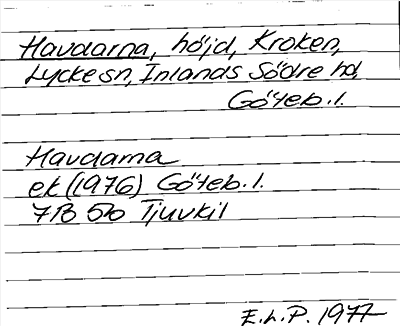 Havdarna, höjd, Kroken,
Lyckesn, Inlands Södre hd,
Göteb. l.
Havdarna
ek (1976) Göteb. l.
7B 5b Tjuvkil
E.L.P. 1977